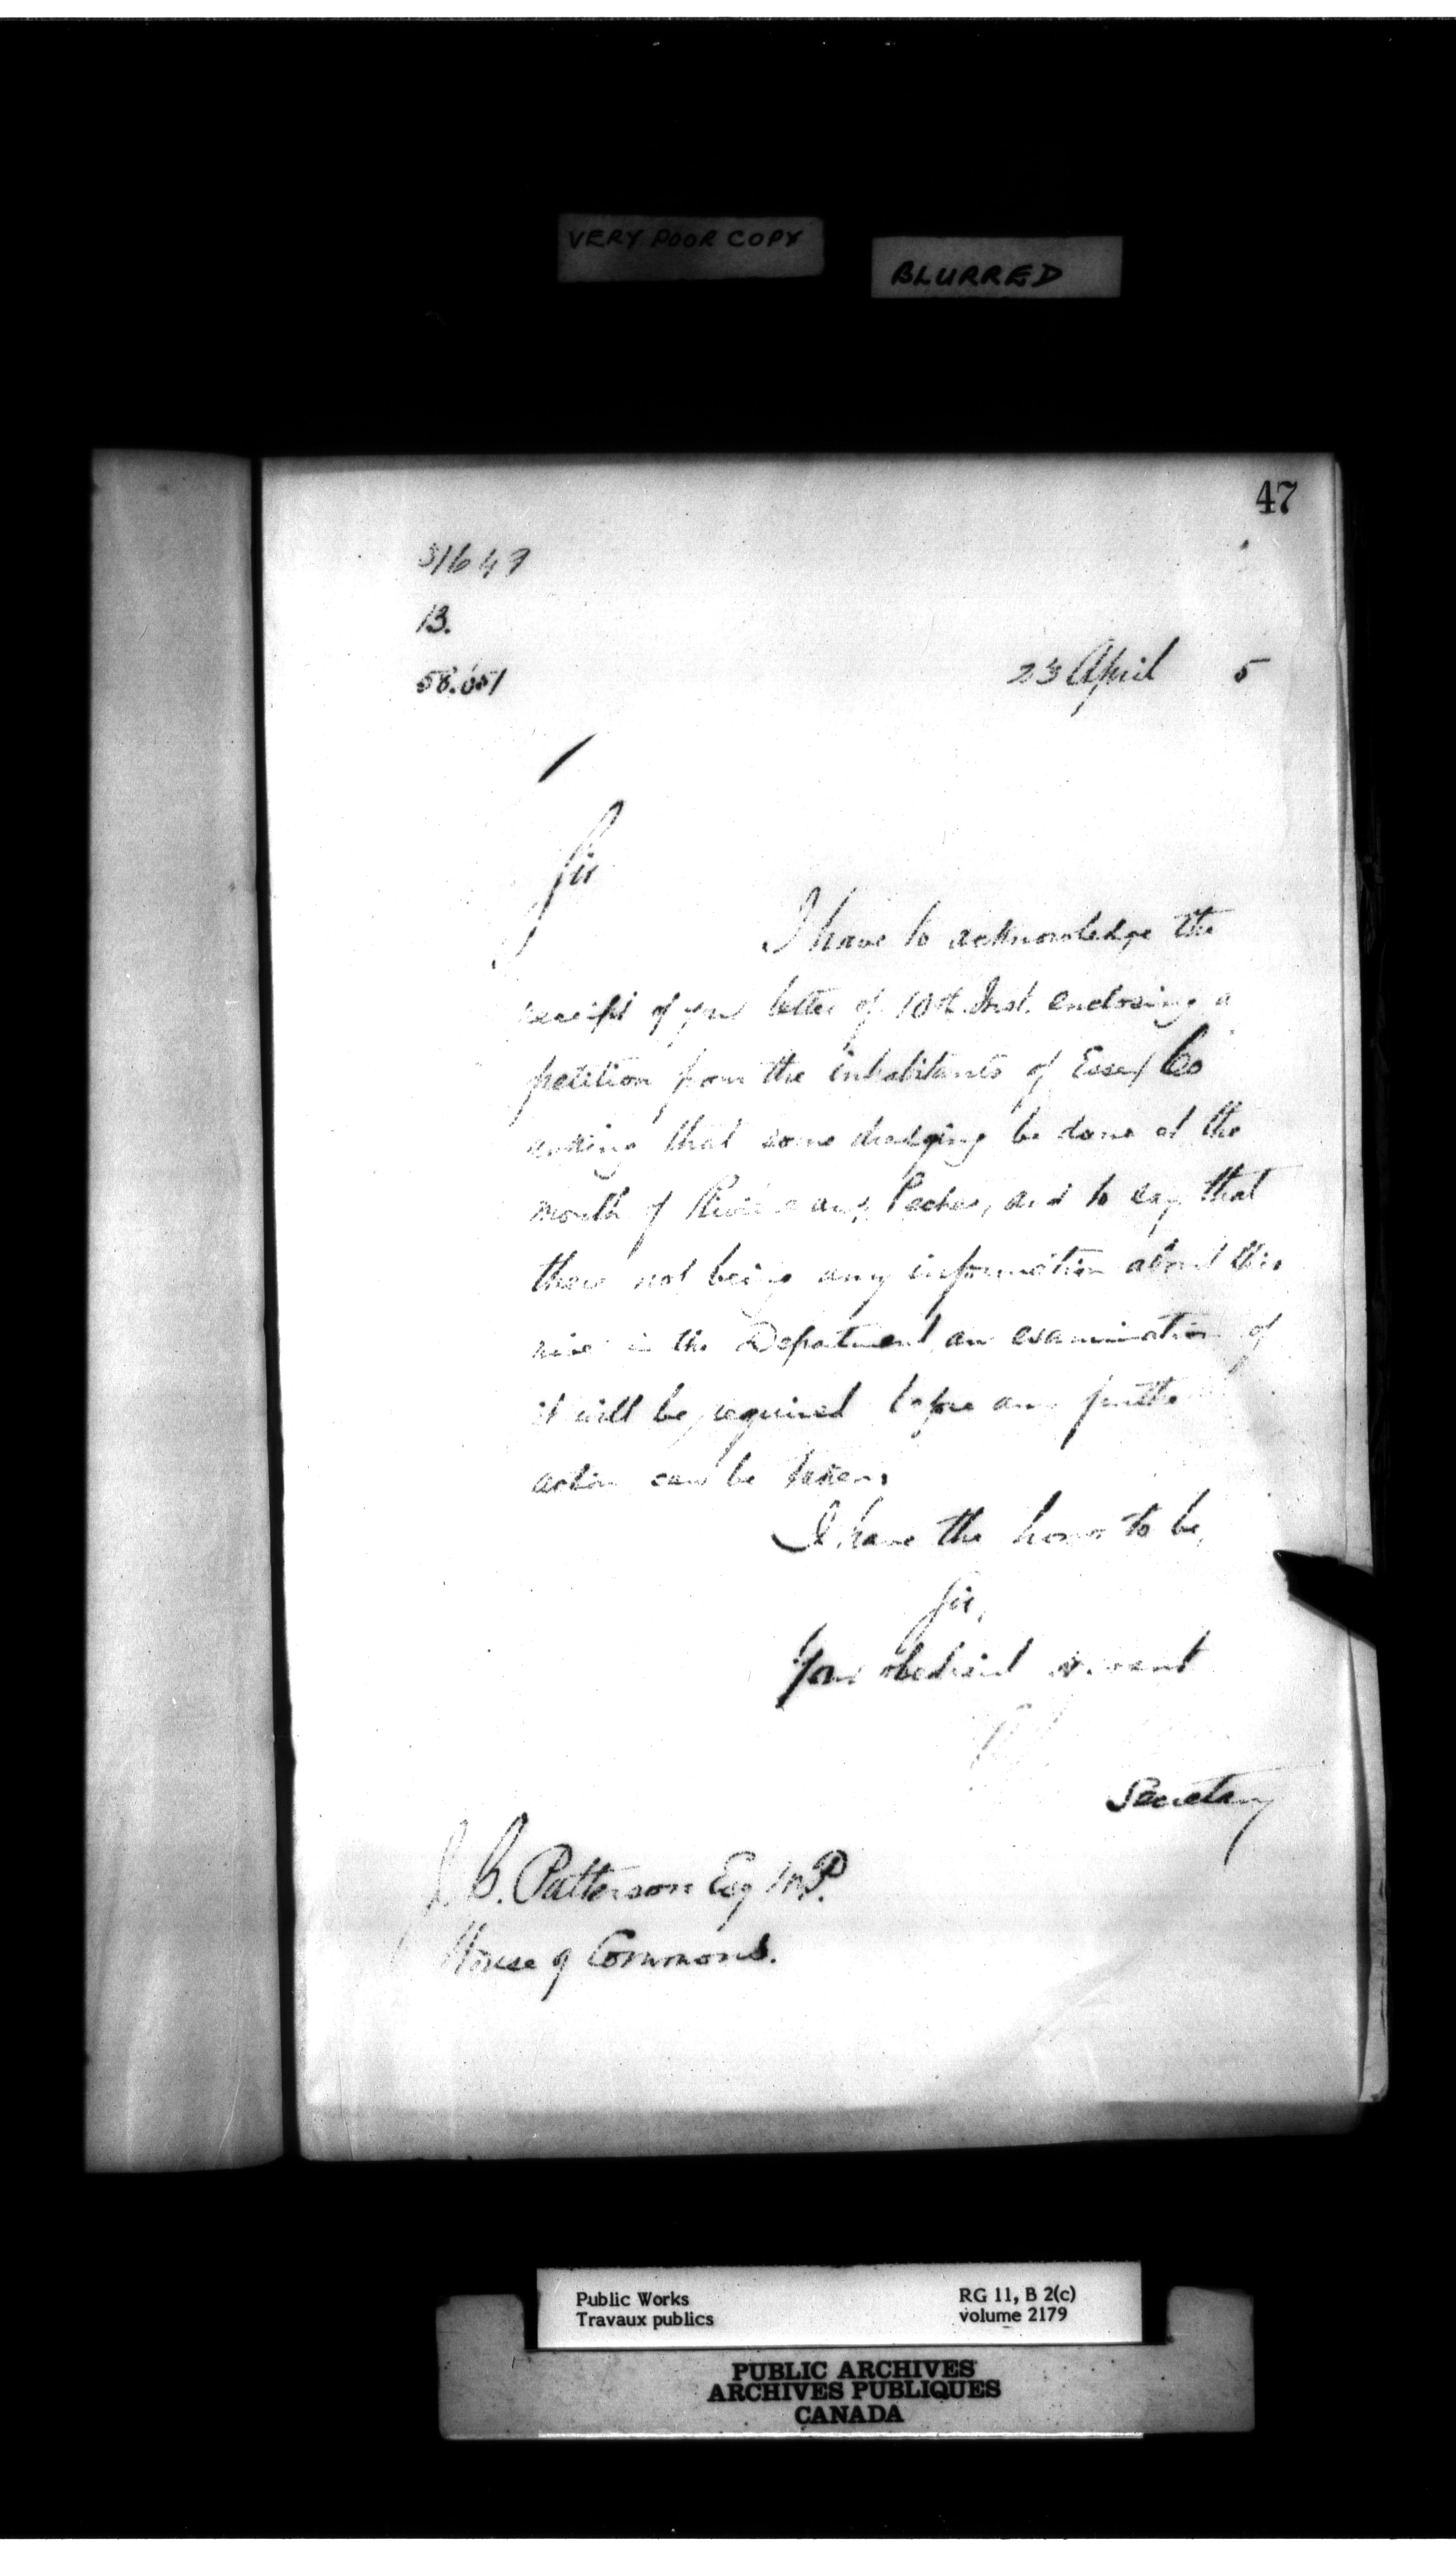 VERY POOR COPY
BLURRED
47
51649
13.
58.051
23 April 5
Sir
I have to acknowledge the
receipt of your letter of 10th Inst. enclosing a
petition from the inhabitants of Essex Co
asking that some dredging be done at the
mouth of Rivière aux Peches, and to say that
there not being any information about this
river in the Department an examination of
it will be required before any further
action can be taken.
I have the honor to be,
Sir,
Your obedient servant
Secretary
J. C. Patterson Esq M.P.
House of Commons.
Public Works
Travaux publics
RG 11, B 2(c)
volume 2179
PUBLIC ARCHIVES
ARCHIVES PUBLIQUES
CANADA